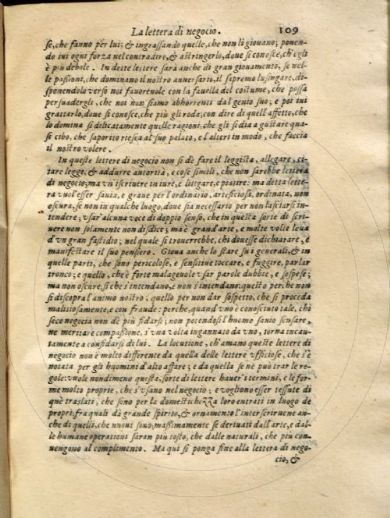 La lettera di negocio. 109
se, che fanno per lui; & ingrassando quelle, che non li giovano; ponen-
do ivi ogni forza nel contradire, & astringerlo, dove si conosce, ch'egli
è più debole. In dette lettere sarà anche di gran giovamento, se nel-
le passioni, che dominano il nostro aversario, il sapremo lusingare, di-
sponendolo verso noi favorevole con la favella del costume, che possa
persuadergli, che noi non siamo abhorrenti dal genio suo; e poi ivi
grattarlo, dove si conosce, che più gli roda; con dire di quell'affetto, che
lo domina sì delicatamente quelle ragioni, che gli si dia a gustare qua-
si cibo, che saporito riesca al suo palato, e l'alteri in modo, che faccia
il nostro volere.
In queste lettere di negocio non si dè fare il leggista, allegare, ci-
tare legge, & addurre autorità, e cose simili, che non sarebbe lettera
di negocio; ma un scrivere in iure, e litigare, e piatire: ma detta lette-
ra vuol'esser savia, e grave per l'ordinario, artificiosa, ordinata, non
oscura, se non in qualche luogo, dove sia necessario per non lasciarsi in-
tendere; usar'alcuna voce di doppio senso, che in questa sorte di scri-
vere non solamente non disdice; ma è grand'arte, e molte volte leva
d'un gran fastidio; nel quale si troverrebbe, chi dovesse dichiarare, e
manifestare il suo pensiero. Giova anche lo stare su i generali, & in
quelle parti, che sono pericolose, e sensitive toccare, e fuggire, parlar
tronco; e quello, ch'è forte malagevole usar parole dubbie, e sospese;
ma non oscure, sì che s'intendano, e non s'intendano: questo per che non
si discopra l'animo nostro; quello per non dar sospetto, che si proceda
malitiosamente, e con fraude: perche, quand'uno è conosciuto tale, chi
seco negocia non dè più fidarsi; non potendosi l'huomo senio scusare,
ne meritare compassione, s'una volta ingannato da uno, torna incau-
tamente a confidarsi di lui. La locutione, ch'amano queste lettere di
negocio non è molto differente da quella delle lettere ufficiose, che s'è
notata per gli huomini d'alto affare; e da quella se nè può trar le re-
gole: vuole nondimeno questa sorte di lettere haver'i termini, e le for-
me molto proprie, che s'usano nel negocio; e vogliono esser tessute di
què traslati, che sino per la domestichezza loro entrati in luogo de
propri; fra quali dà grande spirito, & ornamento l'inserirvene an-
che di quelli, che nuovi sono; massimamente se derivati dall'arte, e dal-
le humane operationi saran più tosto, che dalle naturali, che più con-
vengono al complimento. Ma qui si ponga fine alla lettera di nego-
cio, &